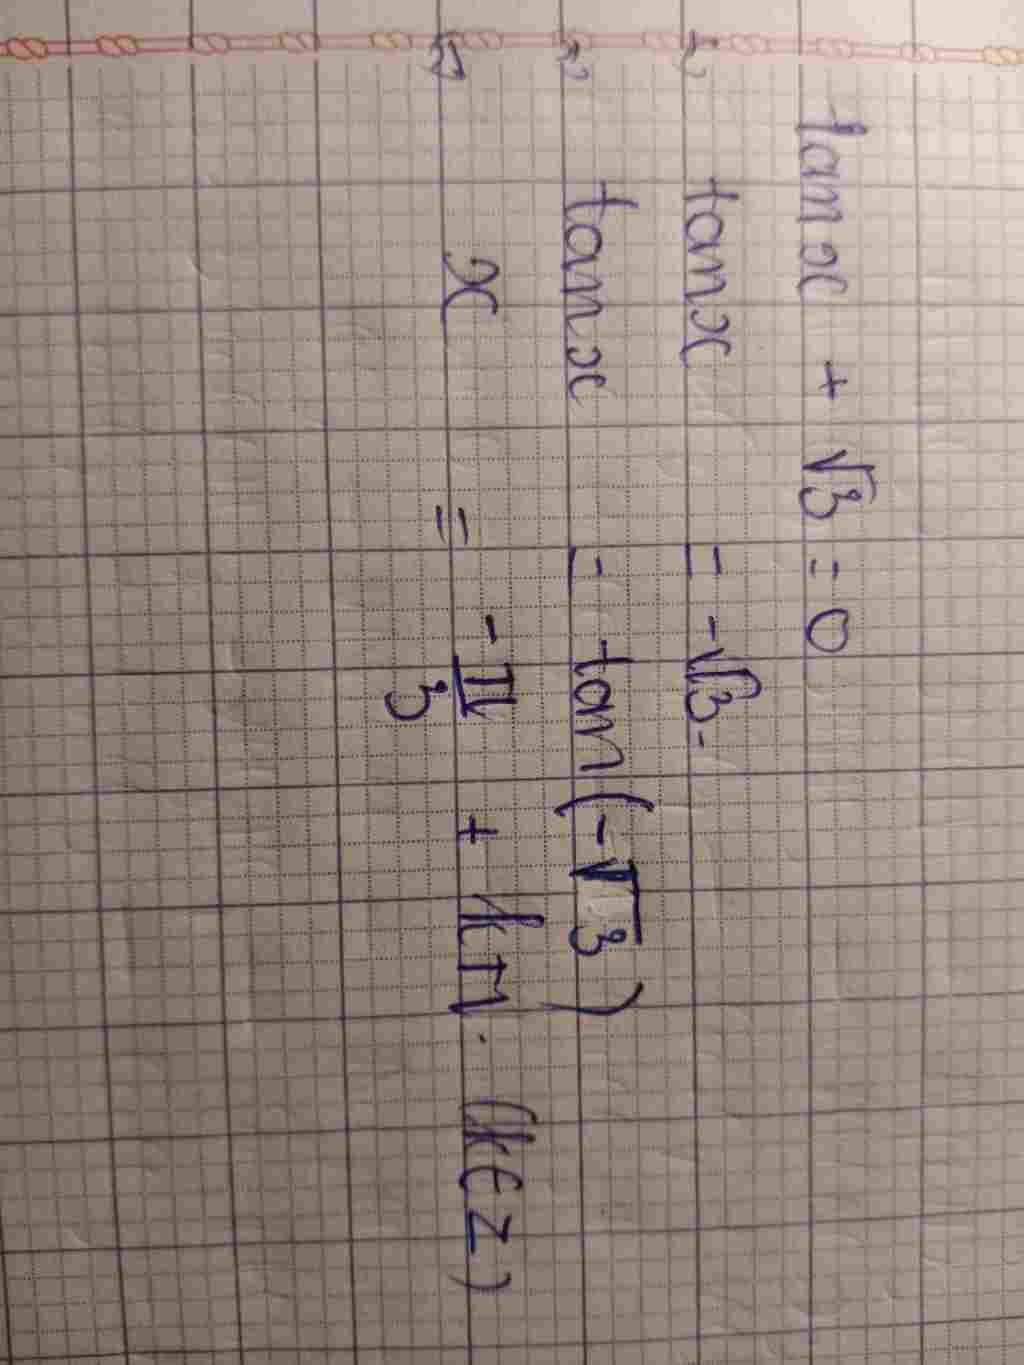 tanx + √3 = 0
⇔ tanx = -√3.
⇔ tanx = tan(-√3)
⇔ x = -π/3 + kπ. (k∈Z)